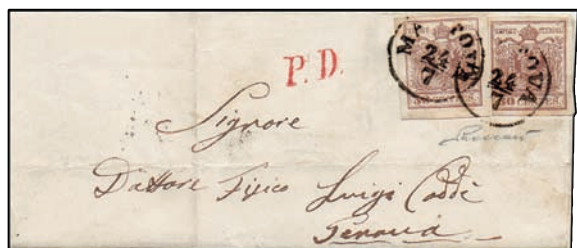 P.D.
MANTOVA
24/7
MANTOVA
24/7
Signore
Dottore Fisico Luigi Coddè
Genova